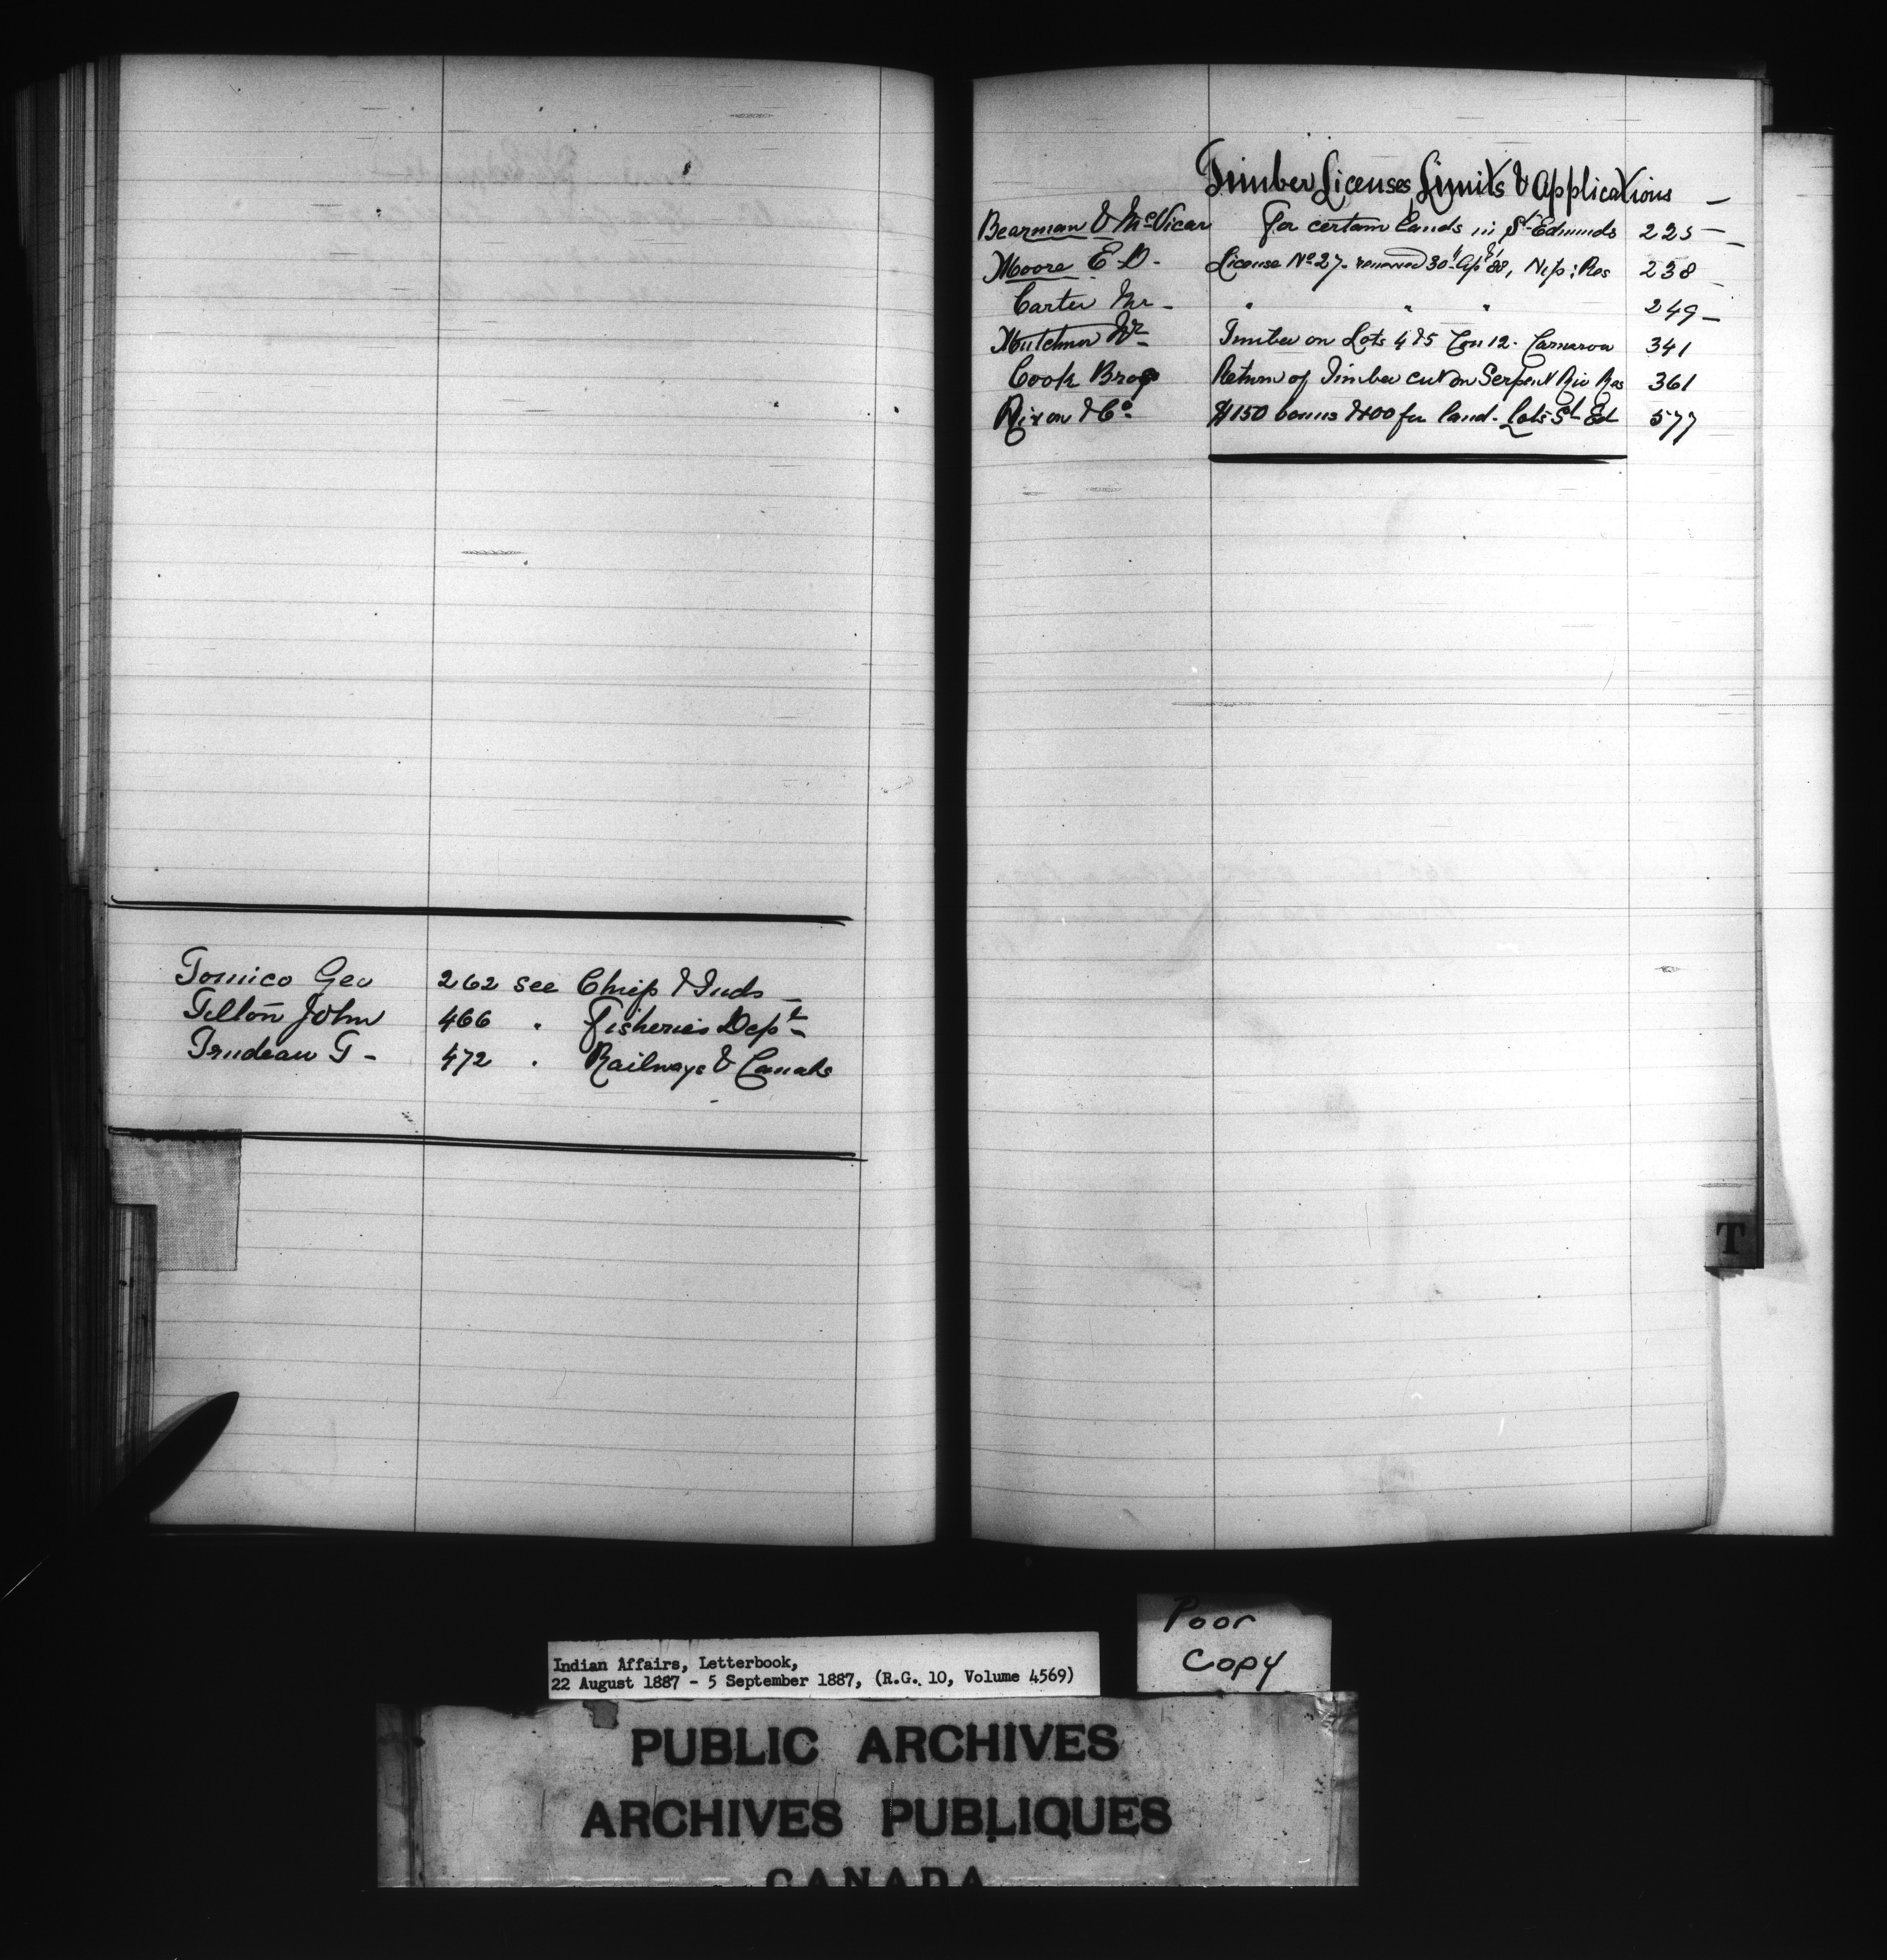 Tomico Geo 262 see Chief & Inds -
Tilton John 466 " Fisheries Dept -
Trudeau T - 472 " Railways & Canals
Timber Licenses, Limits & Applications -
Bearman & McVicar For certain lands in St Edmunds 225 -
Moore E D - License No 27 - renewed 30th Apl 88, Nip: Res 238
Carter Mr - " " " 249 -
Timber on Lots 4 & 5 Con 12 - Carnarvon 341
Cook Bros Return of Timber cut on Serpent Riv Res 361
& Co $150 bonus for land - Lots St Ed 577
T
Poor
Copy
Indian Affairs, Letterbook,
22 August 1887 - 5 September 1887, (R.G. 10, Volume 4569)
PUBLIC ARCHIVES
ARCHIVES PUBLIQUES
CANADA